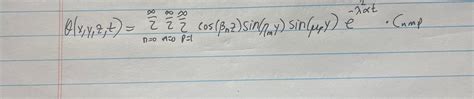 θ(x,y,z,t) = ∞ ∞ ∞ Σ Σ Σ n=0 m=0 p=1 cos(βₙz) sin(ηₘy) sin(μₚy) e^(-λ²αt) · Cnmp